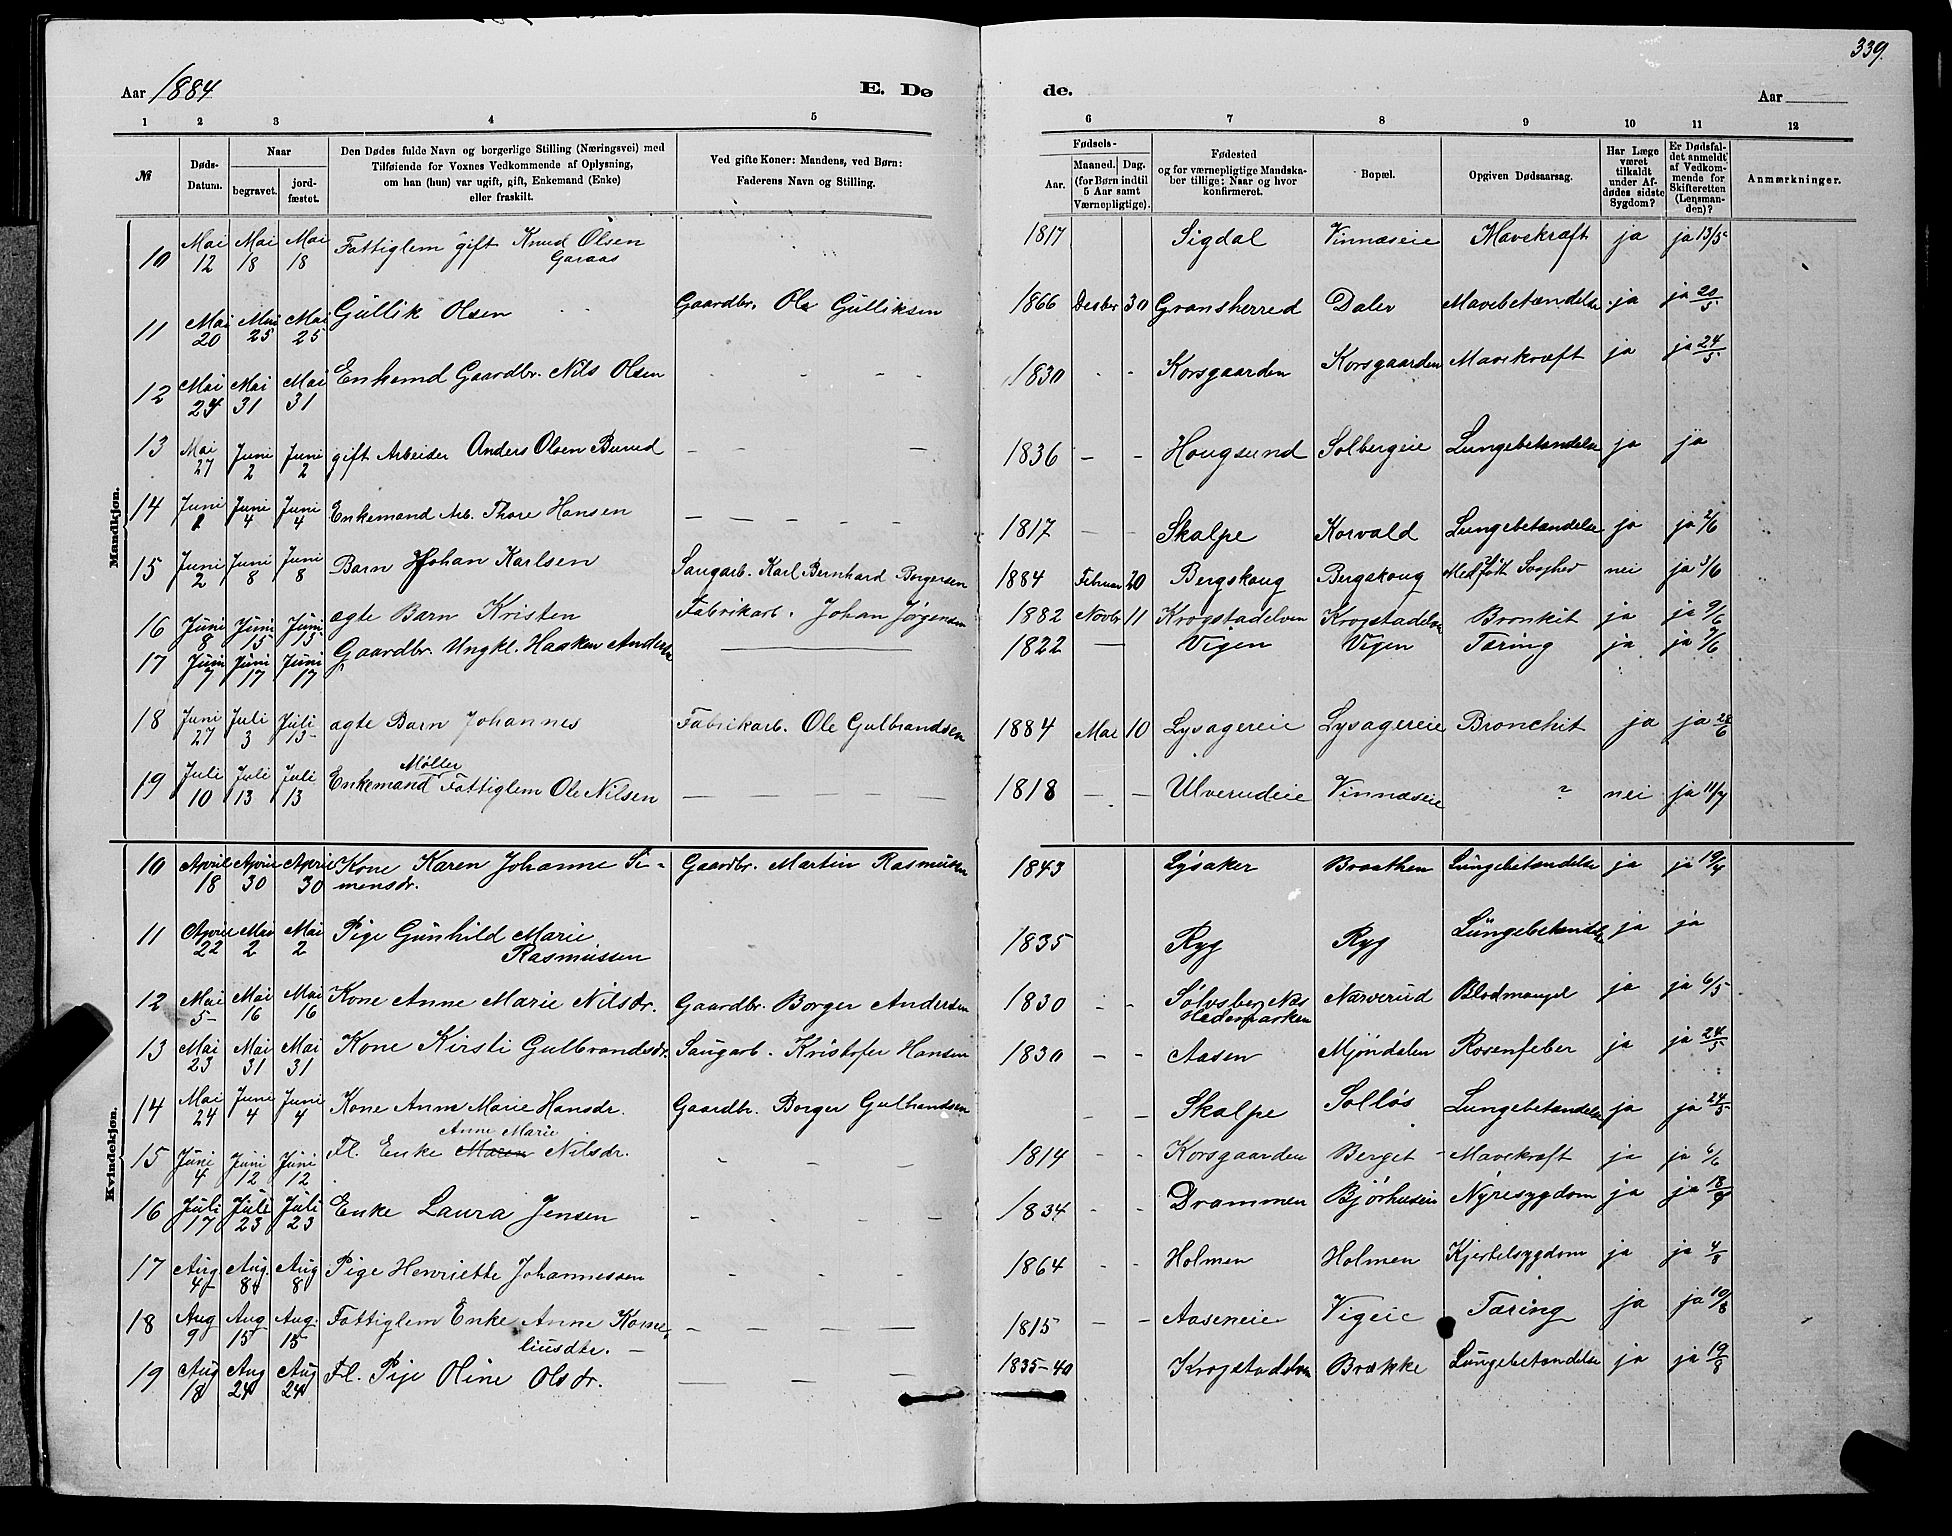 339.
Aar 1884 E. Dø de. Aar
1 2 3 4 5 6 7 8 9 10 11 12
№ Døds-Datum. Naar begravet. jordfæstet. Den Dødes fulde Navn og borgerlige Stilling (Næringsvei) med Tilføiende for Voxnes Vedkommende af Oplysning, om han (hun) var ugift, gift, Enkemand (Enke) eller fraskilt. Ved gifte Koner: Mandens, ved Børn: Faderens Navn og Stilling. Fødsels- Aar. Maaned. Dag. (for Børn indtil 5 Aar samt Værnepligtige). Fødested og for værnepligtige Mandskaber tillige: Naar og hvor konfirmeret. Bopæl. Opgiven Dødsaarsag. Har Læge været tilkaldt under Afdødes sidste Sygdom? Er Dødsfaldet anmeldt af Vedkommende for Skifteretten (Lensmanden)? Anmærkninger.
Mandkjøn.
10 Mai 12 Mai 18 Mai 18 Fattiglem gift Knud Olsen Garaas 1817 Sigdal Vinnæseie Mavekræft ja ja 13/5
11 Mai 20 Mai 25 Mai 25 Gullik Olsen Gaardbr. Ole Gulliksen 1866 Desbr 30 Gransherred Dalev Mavebetændelse ja ja 20/5
12 Mai 24 Mai 31 Mai 31 Enkemd Gaardbr. Nils Olsen 1830 - - Korsgaarden Korsgaarden Mavekræft ja ja 24/5
13 Mai 27 Juni 2 Juni 2 gift Arbeider Anders Olsen Burud — — — 1836 — - Hougsund Solbergeie Lungebetændelse ja ja
14 Juni 1 Juni 4 Juni 4 Enkemand Arb. Thore Hansen — — — — — 1817 — - Skalpe Korvald Lungebetændelse ja ja 2/6
15 Juni 2 Juni 8 Juni 8 Barn Johan Karlsen Saugarb. Karl Bernhard Borgersen 1884 Februar 20 Bergskoug Bergskoug Medfødt Svaghed nei ja 3/6
16 Juni 8 Juni 15 Juni 15 ægte Barn Kristen Fabrikarb. Johan Jørgensen 1882 Novbr 11 Krogstadelven Krogstadelven Bronkit ja ja 9/6
17 Juni 7 Juni 17 Juni 17 Gaardbr. Ungkl. Haaken Andersen — 1822 — Vigen Vigen Tæring ja ja 7/6
18 Juni 27 Juli 3 Juli 13 ægte Barn Johannes Fabrikarb. Ole Gulbrandsen 1884 Mai 10 Lysagereie Lysagereie Bronchit ja ja 28/6
19 Juli 10 Juli 13 Juli 13 Enkemand Møller Fattiglem Ole Nilsen — — — — — 1818 — — Ulverudeie Vinnæseie ? nei ja 11/7
Kvindekjøn.
10 April 18 April 30 April 30 Kone Karen Johanne Si-
mensdr. Gaardbr. Martin Rasmussen 1843 Lysaker Braathen Lungebetændelse ja ja 19/4
11 April 22 Mai 2 Mai 2 Pige Gunhild Marie
Rasmussen 1835 Ryg Ryg Lungebetændelse ja ja
12 Mai 5 Mai 16 Mai 16 Kone Anne Marie Nilsdr. Gaardbr. Borger Andersen 1830 - - Sølvsberg Næs Hedemarken Narverud Blodmangel ja ja 6/5
13 Mai 23 Mai 31 Mai 31 Kone Kirsti Gulbrandsdr. Saugarb. Kristofer Hansen 1830 - - Aasen Mjøndalen Rosenfeber ja ja 24/5
14 Mai 24 Juni 4 Juni 4 Kone Anne Marie Hansdr. Gaardbr. Borger Gulbrandsen - - Skalpe Solløs Lungebetændelse ja ja 24/5
15 Juni 4 Juni 12 Juni 12 Fl. Enke Maren Anne Marie Nilsdr. - - - 1814 - - Korsgaarden Berget Mavekræft ja ja 6/6
16 Juli 17 Juli 23 Juli 23 Enke Laura Jensen - - - 1834 - - Drammen Bjørhuseie Nyresygdom ja ja
17 Aug. 4 Aug. 8 Aug 8 Pige Henriette Johannessen - - - 1864 - - Holmen Holmen Kjertelsygdom ja ja 4/8
18 Aug 9 Aug 15 Aug. 15 Fattiglem Enke Anne Korne-
liusdtr. — — — — — 1815 — — Aaseneie Vigeie Tæring ja ja 10/8
19 Aug 18 Aug 24 Aug 24 Fl. Pije Oline Olsdr. — — — 1835-40 Krogstadelven Brække Lungebetændelse ja ja 19/8